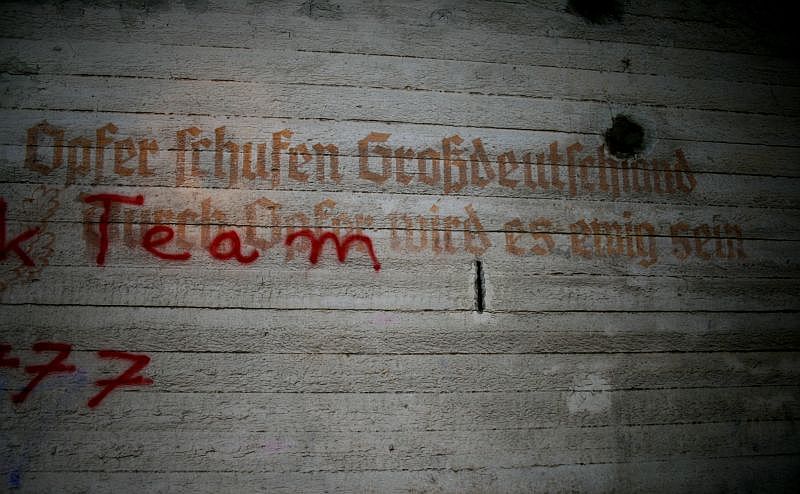 Opfer schufen Großdeutschland
Durch Opfer wird es ewig sein
k Team
777